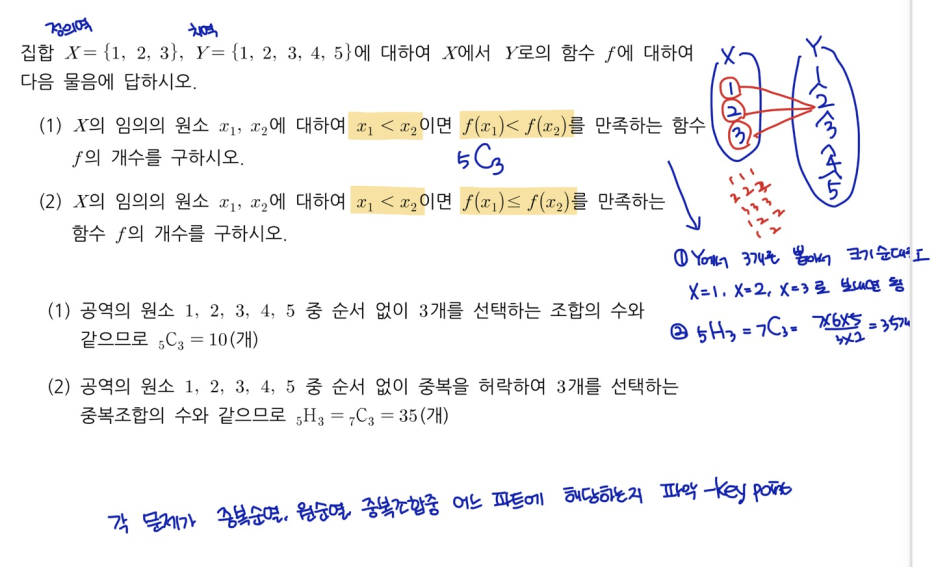 정의역
치역
집합 X = {1, 2, 3}, Y = {1, 2, 3, 4, 5}에 대하여 X에서 Y로의 함수 f에 대하여
다음 물음에 답하시오.
(1) X의 임의의 원소 x₁, x₂에 대하여 x₁ < x₂이면 f(x₁) < f(x₂)를 만족하는 함수
f의 개수를 구하시오.
₅C₃
(2) X의 임의의 원소 x₁, x₂에 대하여 x₁ < x₂이면 f(x₁) ≤ f(x₂)를 만족하는
함수 f의 개수를 구하시오.
X
Y
1
2
3
1
2
3
4
5
1 1 1
2 2 2
3 3 3
1 2 2
1 2
① Y에서 3개를 뽑아서 크기순대로
X=1, X=2, X=3로 보내면 됨
② ₅H₃ = ₇C₃ = 7×6×5/3×2 = 35개
(1) 공역의 원소 1, 2, 3, 4, 5 중 순서 없이 3개를 선택하는 조합의 수와
같으므로 ₅C₃ = 10(개)
(2) 공역의 원소 1, 2, 3, 4, 5 중 순서 없이 중복을 허락하여 3개를 선택하는
중복조합의 수와 같으므로 ₅H₃ = ₇C₃ = 35(개)
각 문제가 중복순열, 원순열, 중복조합중 어느 파트에 해당하는지 파악 - key point